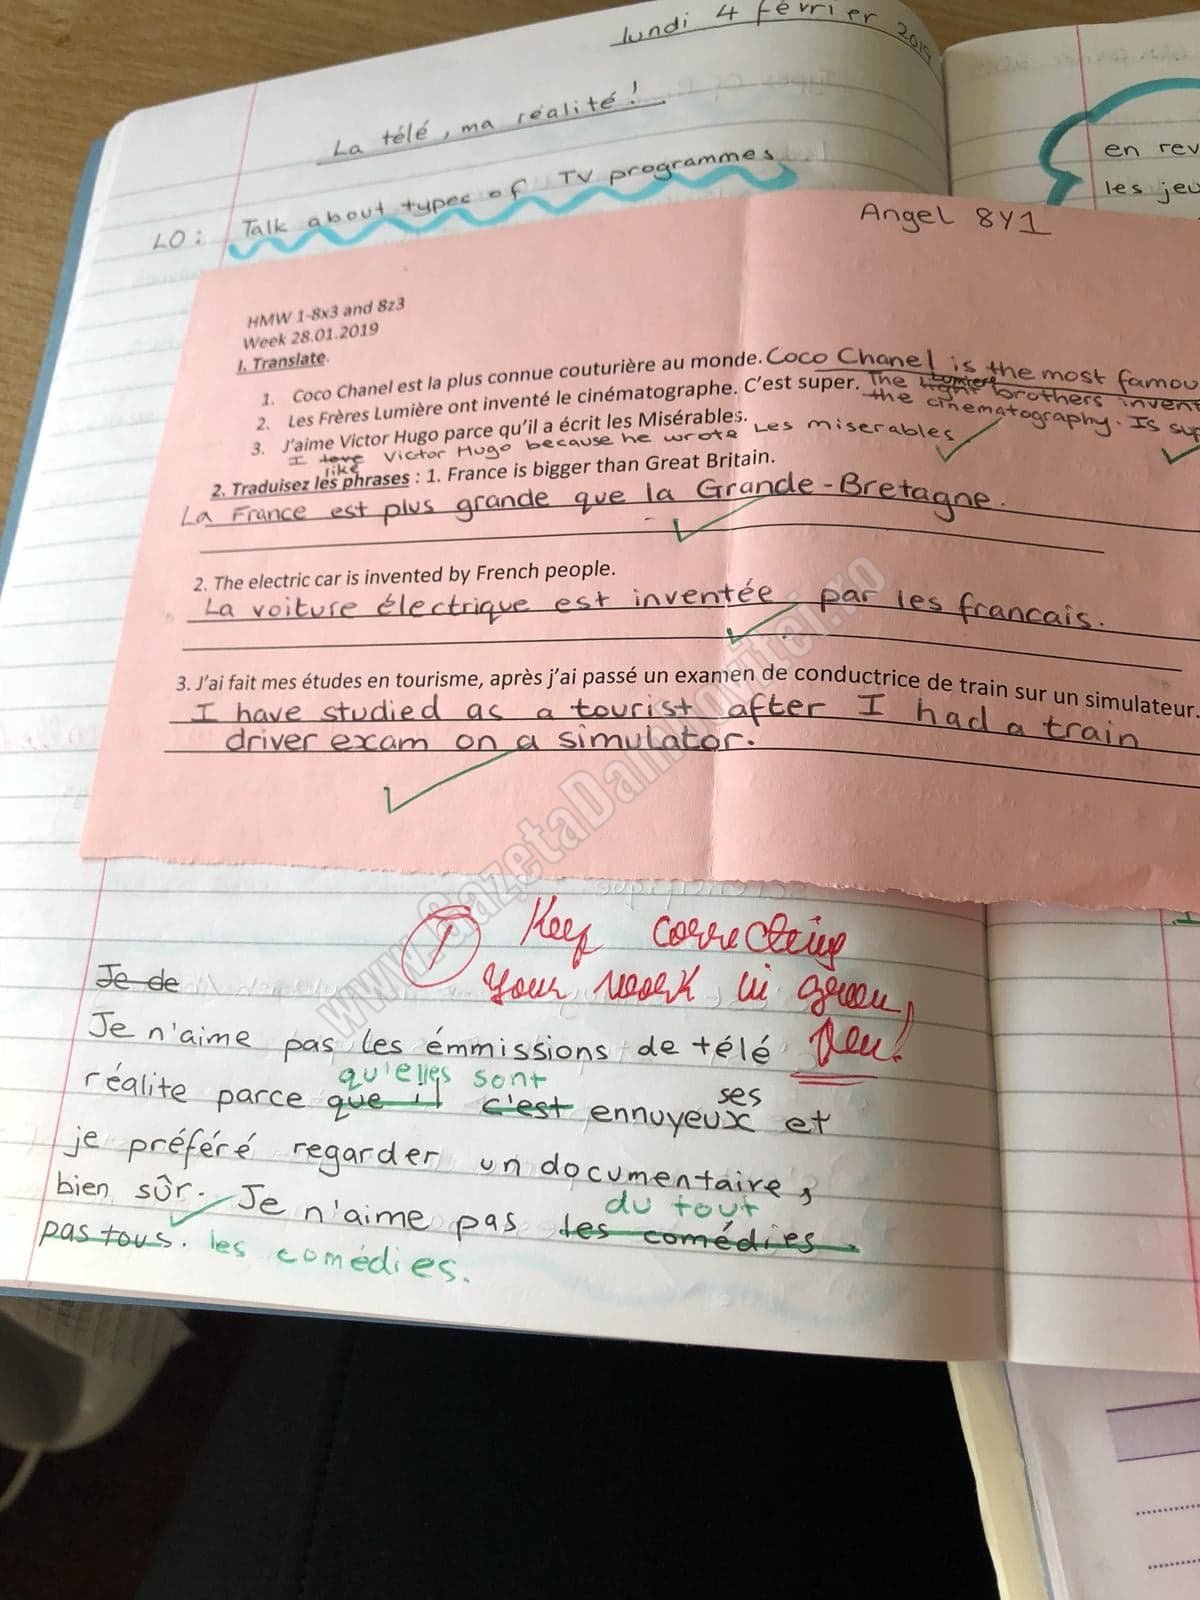 lundi 4 février 2019
La télé, ma réalité!
LO: Talk about types of TV programmes
en rev
les jeu
Angel 8Y1
HMW 1-8x3 and 8z3
Week 28.01.2019
1. Translate.
1. Coco Chanel est la plus connue couturière au monde. Coco Chanel is the most famou
2. Les Frères Lumière ont inventé le cinématographe. C'est super. The Lumiere brothers invent
the cinematography. Is sup
3. J'aime Victor Hugo parce qu'il a écrit les Misérables.
I love like Victor Hugo because he wrote Les miserables
2. Traduisez les phrases : 1. France is bigger than Great Britain.
La France est plus grande que la Grande-Bretagne.
2. The electric car is invented by French people.
La voiture électrique est inventée par les francais.
3. J'ai fait mes études en tourisme, après j'ai passé un examen de conductrice de train sur un simulateur.
I have studied as a tourist after I had a train
driver exam on a simulator.
www.GazetaDambovitei.ro
Keep correcting
your work in green,
Je de
Je n'aime pas les émmissions de télé
qu'elles sont ses
réalite parce que il c'est ennuyeux et
je préféré regarder un documentaire,
du tout
bien sûr. Je n'aime pas les comédies.
pas tous. les comédies.